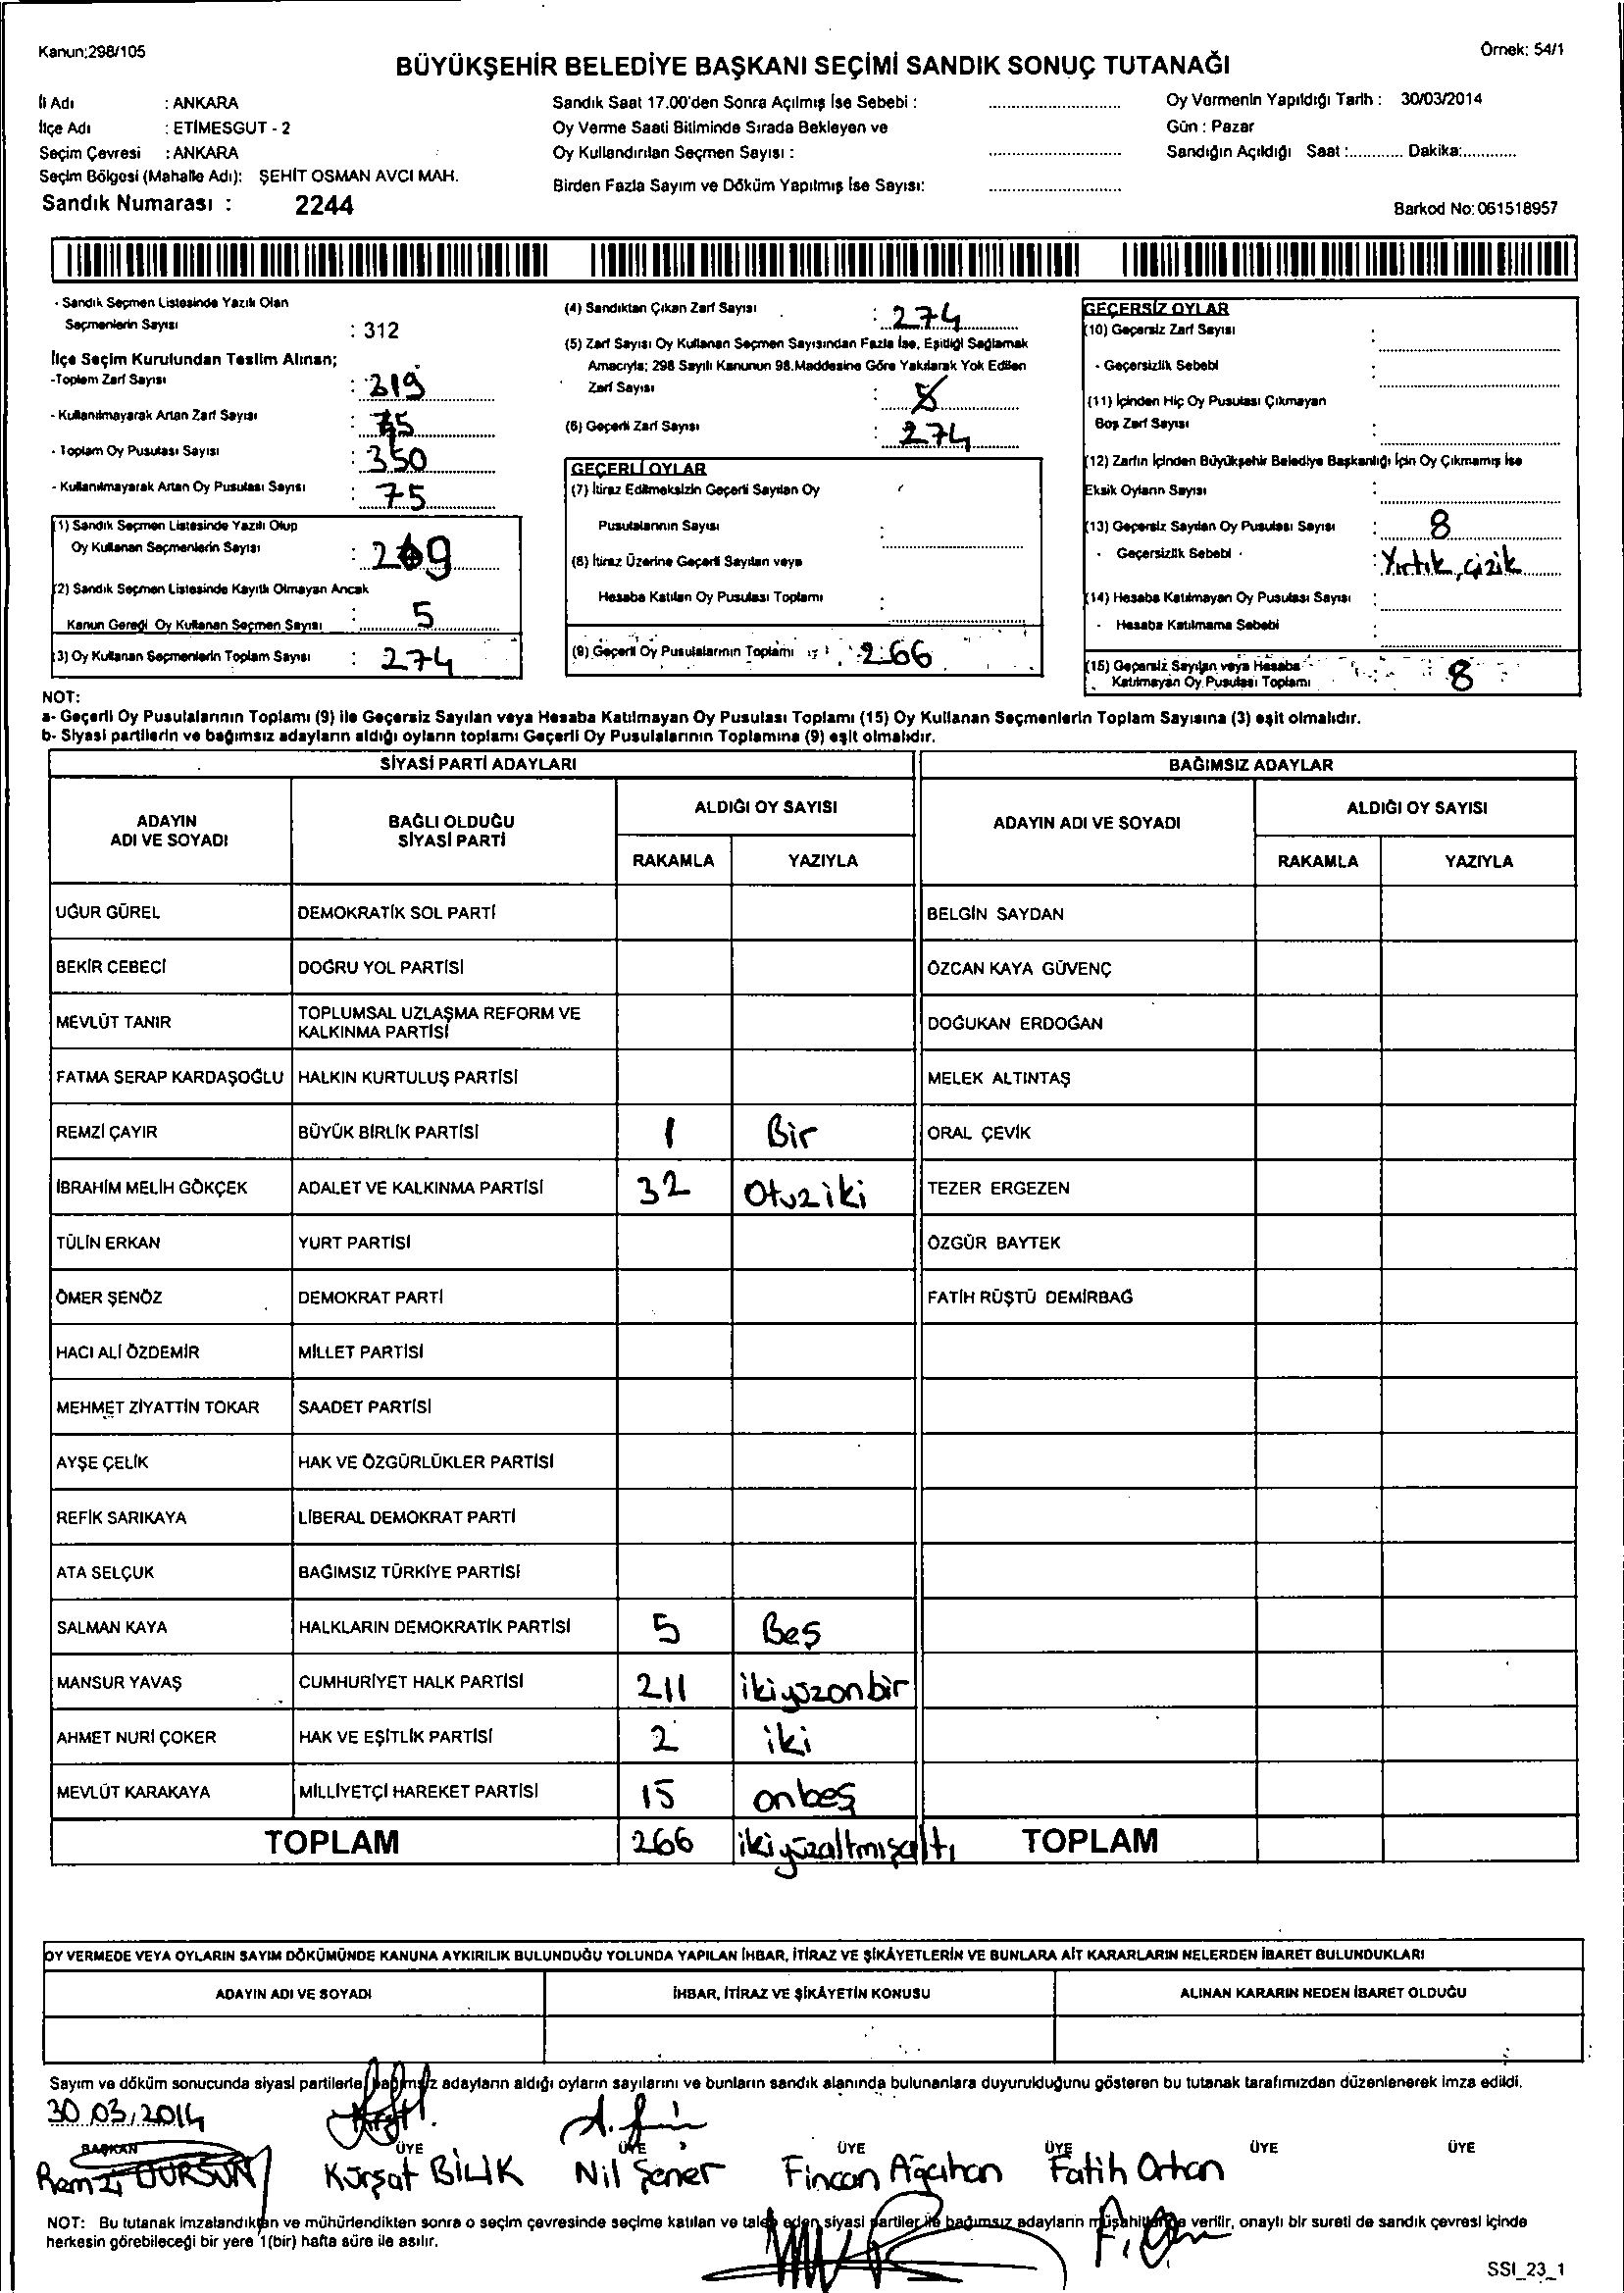 Kanun;298/105
Örnek: 54/1
BÜYÜKŞEHİR BELEDİYE BAŞKANI SEÇİMİ SANDIK SONUÇ TUTANAĞI
İl Adı : ANKARA
İlçe Adı : ETİMESGUT - 2
Seçim Çevresi : ANKARA
Seçim Bölgesi (Mahalle Adı): ŞEHİT OSMAN AVCI MAH.
Sandık Numarası : 2244
Sandık Saat 17.00'den Sonra Açılmış İse Sebebi :
Oy Verme Saati Bitiminde Sırada Bekleyen ve
Oy Kullandırılan Seçmen Sayısı :
Birden Fazla Sayım ve Döküm Yapılmış İse Sayısı:
Oy Vermenin Yapıldığı Tarih : 30/03/2014
Gün : Pazar
Sandığın Açıldığı Saat :............ Dakika:............
Barkod No: 061518957
- Sandık Seçmen Listesinde Yazılı Olan
Seçmenlerin Sayısı : 312
İlçe Seçim Kurulundan Teslim Alınan;
-Toplam Zarf Sayısı : 319
- Kullanılmayarak Artan Zarf Sayısı : 45
- Toplam Oy Pusulası Sayısı : 350
- Kullanılmayarak Artan Oy Pusulası Sayısı : 75
(1) Sandık Seçmen Listesinde Yazılı Olup
Oy Kullanan Seçmenlerin Sayısı : 269
(2) Sandık Seçmen Listesinde Kayıtlı Olmayan Ancak
Kanun Gereği Oy Kullanan Seçmen Sayısı : 5
(3) Oy Kullanan Seçmenlerin Toplam Sayısı : 274
(4) Sandıktan Çıkan Zarf Sayısı : 274
(5) Zarf Sayısı Oy Kullanan Seçmen Sayısından Fazla İse, Eşitliği Sağlamak
Amacıyla; 298 Sayılı Kanunun 98.Maddesine Göre Yakılarak Yok Edilen
Zarf Sayısı :
(6) Geçerli Zarf Sayısı : 274
GEÇERLİ OYLAR
(7) İtiraz Edilmeksizin Geçerli Sayılan Oy
Pusulalarının Sayısı :
(8) İtiraz Üzerine Geçerli Sayılan veya
Hesaba Katılan Oy Pusulası Toplamı :
(9) Geçerli Oy Pusulalarının Toplamı : 266
GEÇERSİZ OYLAR
(10) Geçersiz Zarf Sayısı :
- Geçersizlik Sebebi :
(11) İçinden Hiç Oy Pusulası Çıkmayan
Boş Zarf Sayısı :
(12) Zarfın İçinden Büyükşehir Belediye Başkanlığı İçin Oy Çıkmamış İse
Eksik Oyların Sayısı :
(13) Geçersiz Sayılan Oy Pusulası Sayısı : 8
- Geçersizlik Sebebi - : Yırtık, çizik
(14) Hesaba Katılmayan Oy Pusulası Sayısı :
- Hesaba Katılmama Sebebi :
(15) Geçersiz Sayılan veya Hesaba
Katılmayan Oy Pusulası Toplamı 8
NOT:
a- Geçerli Oy Pusulalarının Toplamı (9) ile Geçersiz Sayılan veya Hesaba Katılmayan Oy Pusulası Toplamı (15) Oy Kullanan Seçmenlerin Toplam Sayısına (3) eşit olmalıdır.
b- Siyasi partilerin ve bağımsız adayların aldığı oyların toplamı Geçerli Oy Pusulalarının Toplamına (9) eşit olmalıdır.
SİYASİ PARTİ ADAYLARI BAĞIMSIZ ADAYLAR
ADAYIN
ADI VE SOYADI
BAĞLI OLDUĞU
SİYASİ PARTİ
ALDIĞI OY SAYISI
RAKAMLA YAZIYLA
ADAYIN ADI VE SOYADI
ALDIĞI OY SAYISI
RAKAMLA YAZIYLA
UĞUR GÜREL DEMOKRATİK SOL PARTİ BELGİN SAYDAN
BEKİR CEBECİ DOĞRU YOL PARTİSİ ÖZCAN KAYA GÜVENÇ
MEVLÜT TANIR TOPLUMSAL UZLAŞMA REFORM VE
KALKINMA PARTİSİ DOĞUKAN ERDOĞAN
FATMA SERAP KARDAŞOĞLU HALKIN KURTULUŞ PARTİSİ MELEK ALTINTAŞ
REMZİ ÇAYIR BÜYÜK BİRLİK PARTİSİ 1 Bir ORAL ÇEVİK
İBRAHİM MELİH GÖKÇEK ADALET VE KALKINMA PARTİSİ 32 Otuziki TEZER ERGEZEN
TÜLİN ERKAN YURT PARTİSİ ÖZGÜR BAYTEK
ÖMER ŞENÖZ DEMOKRAT PARTİ FATİH RÜŞTÜ DEMİRBAĞ
HACI ALİ ÖZDEMİR MİLLET PARTİSİ
MEHMET ZİYATTİN TOKAR SAADET PARTİSİ
AYŞE ÇELİK HAK VE ÖZGÜRLÜKLER PARTİSİ
REFİK SARIKAYA LİBERAL DEMOKRAT PARTİ
ATA SELÇUK BAĞIMSIZ TÜRKİYE PARTİSİ
SALMAN KAYA HALKLARIN DEMOKRATİK PARTİSİ 5 Beş
MANSUR YAVAŞ CUMHURİYET HALK PARTİSİ 211 ikiyüzonbir
AHMET NURİ ÇOKER HAK VE EŞİTLİK PARTİSİ 2 iki
MEVLÜT KARAKAYA MİLLİYETÇİ HAREKET PARTİSİ 15 onbeş
TOPLAM 266 ikiyüzaltmışaltı TOPLAM
OY VERMEDE VEYA OYLARIN SAYIM DÖKÜMÜNDE KANUNA AYKIRILIK BULUNDUĞU YOLUNDA YAPILAN İHBAR, İTİRAZ VE ŞİKÂYETLERİN VE BUNLARA AİT KARARLARIN NELERDEN İBARET BULUNDUKLARI
ADAYIN ADI VE SOYADI İHBAR, İTİRAZ VE ŞİKÂYETİN KONUSU ALINAN KARARIN NEDEN İBARET OLDUĞU
Sayım ve döküm sonucunda siyasi partilerle bağımsız adayların aldığı oyların sayılarını ve bunların sandık alanında bulunanlara duyurulduğunu gösteren bu tutanak tarafımızdan düzenlenerek imza edildi.
30.03.2014
BAŞKAN ÜYE ÜYE ÜYE ÜYE ÜYE ÜYE
Remzi DURSUN Kürşat BİLİK Nil Şener Fincan Ağcıhan Fatih Ortan
NOT: Bu tutanak imzalandıktan ve mühürlendikten sonra o seçim çevresinde seçime katılan ve talep eden siyasi partiler ile bağımsız adayların müşahitlerine verilir, onaylı bir sureti de sandık çevresi içinde
herkesin görebileceği bir yere 1(bir) hafta süre ile asılır.
SSI_23_1